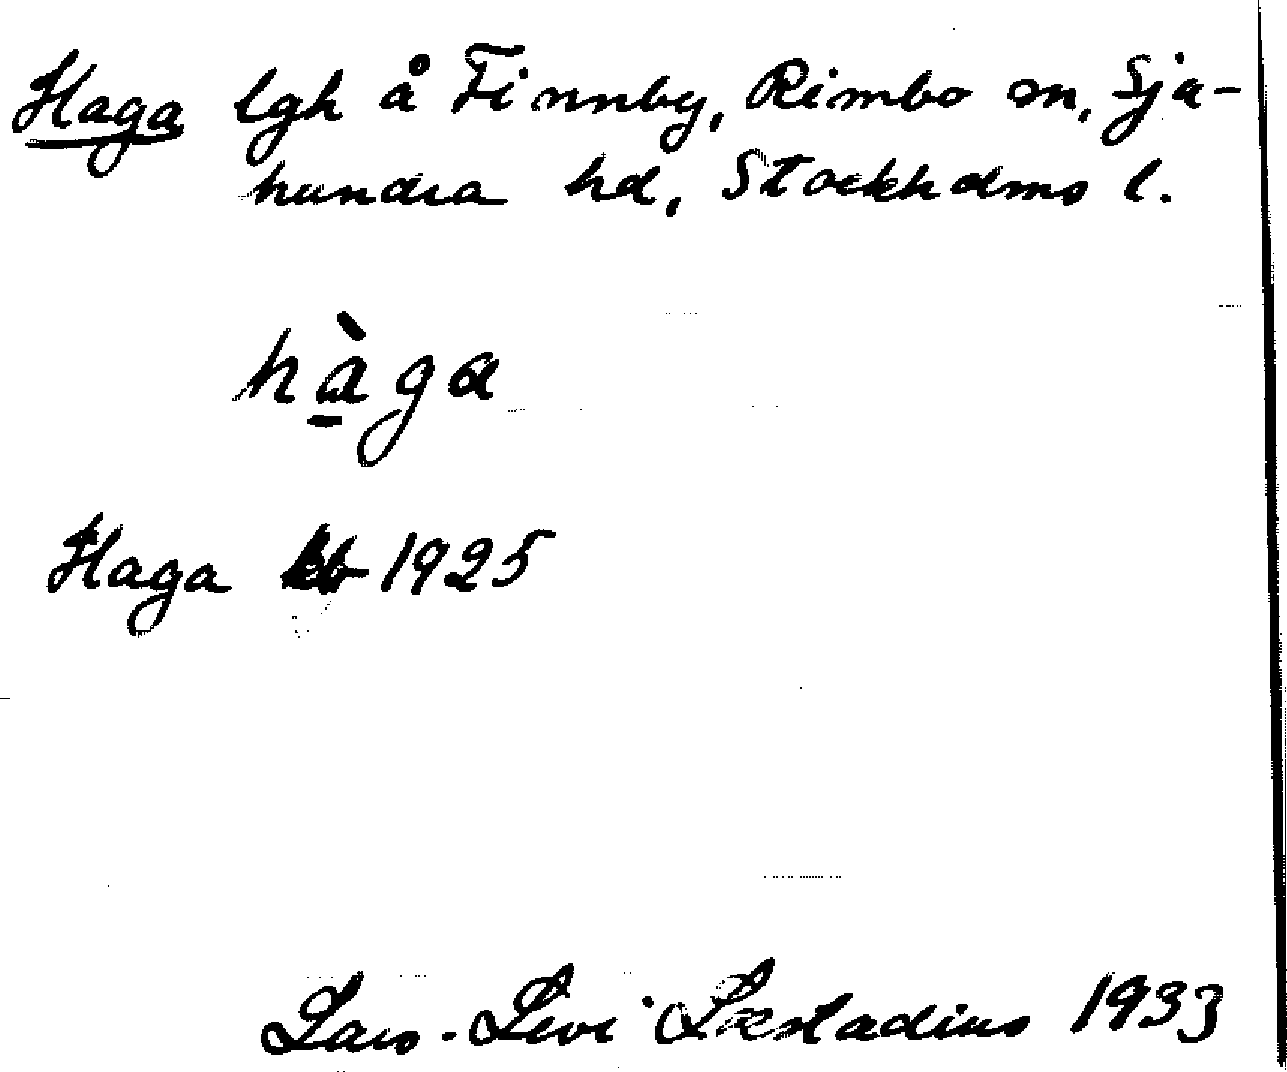 Haga lgh å Finnby, Rimbo sn, Sju-
hundra hd, Stockholms l.
hàga
Haga kb 1925
Lars-Levi Læstadius 1933